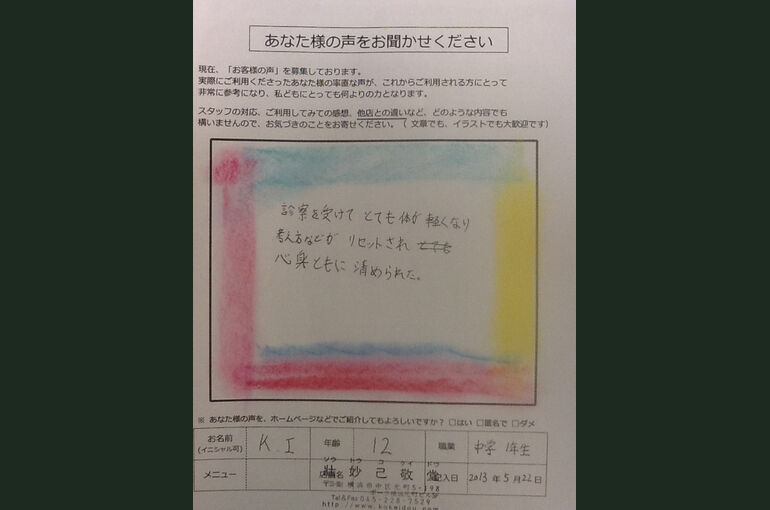 あなた様の声をお聞かせください
現在、「お客様の声」を募集しております。
実際にご利用くださったあなた様の率直な声が、これからご利用される方にとって
非常に参考になり、私どもにとっても何よりの力となります。
スタッフの対応、ご利用してみての感想、他店との違いなど、どのような内容でも
構いませんので、お気づきのことをお寄せください。（ 文章でも、イラストでも大歓迎です）
診察を受けて とても体が軽くなり
考え方などが リセットされ とても
心身ともに 清められた。
※ あなた様の声を、ホームページなどでご紹介してもよろしいですか？ □はい □匿名で □ダメ
お名前 (イニシャル可) K.I 年齢 12 職業 中学1年生
ソウ トウ コ ケイ ドウ
メニュー 店舗名 壯妙己敬堂 記入日 2013年5月22日
横浜市中区元町5-198
Tel&Fax 045-228-7529
http://www.kokeidou.com